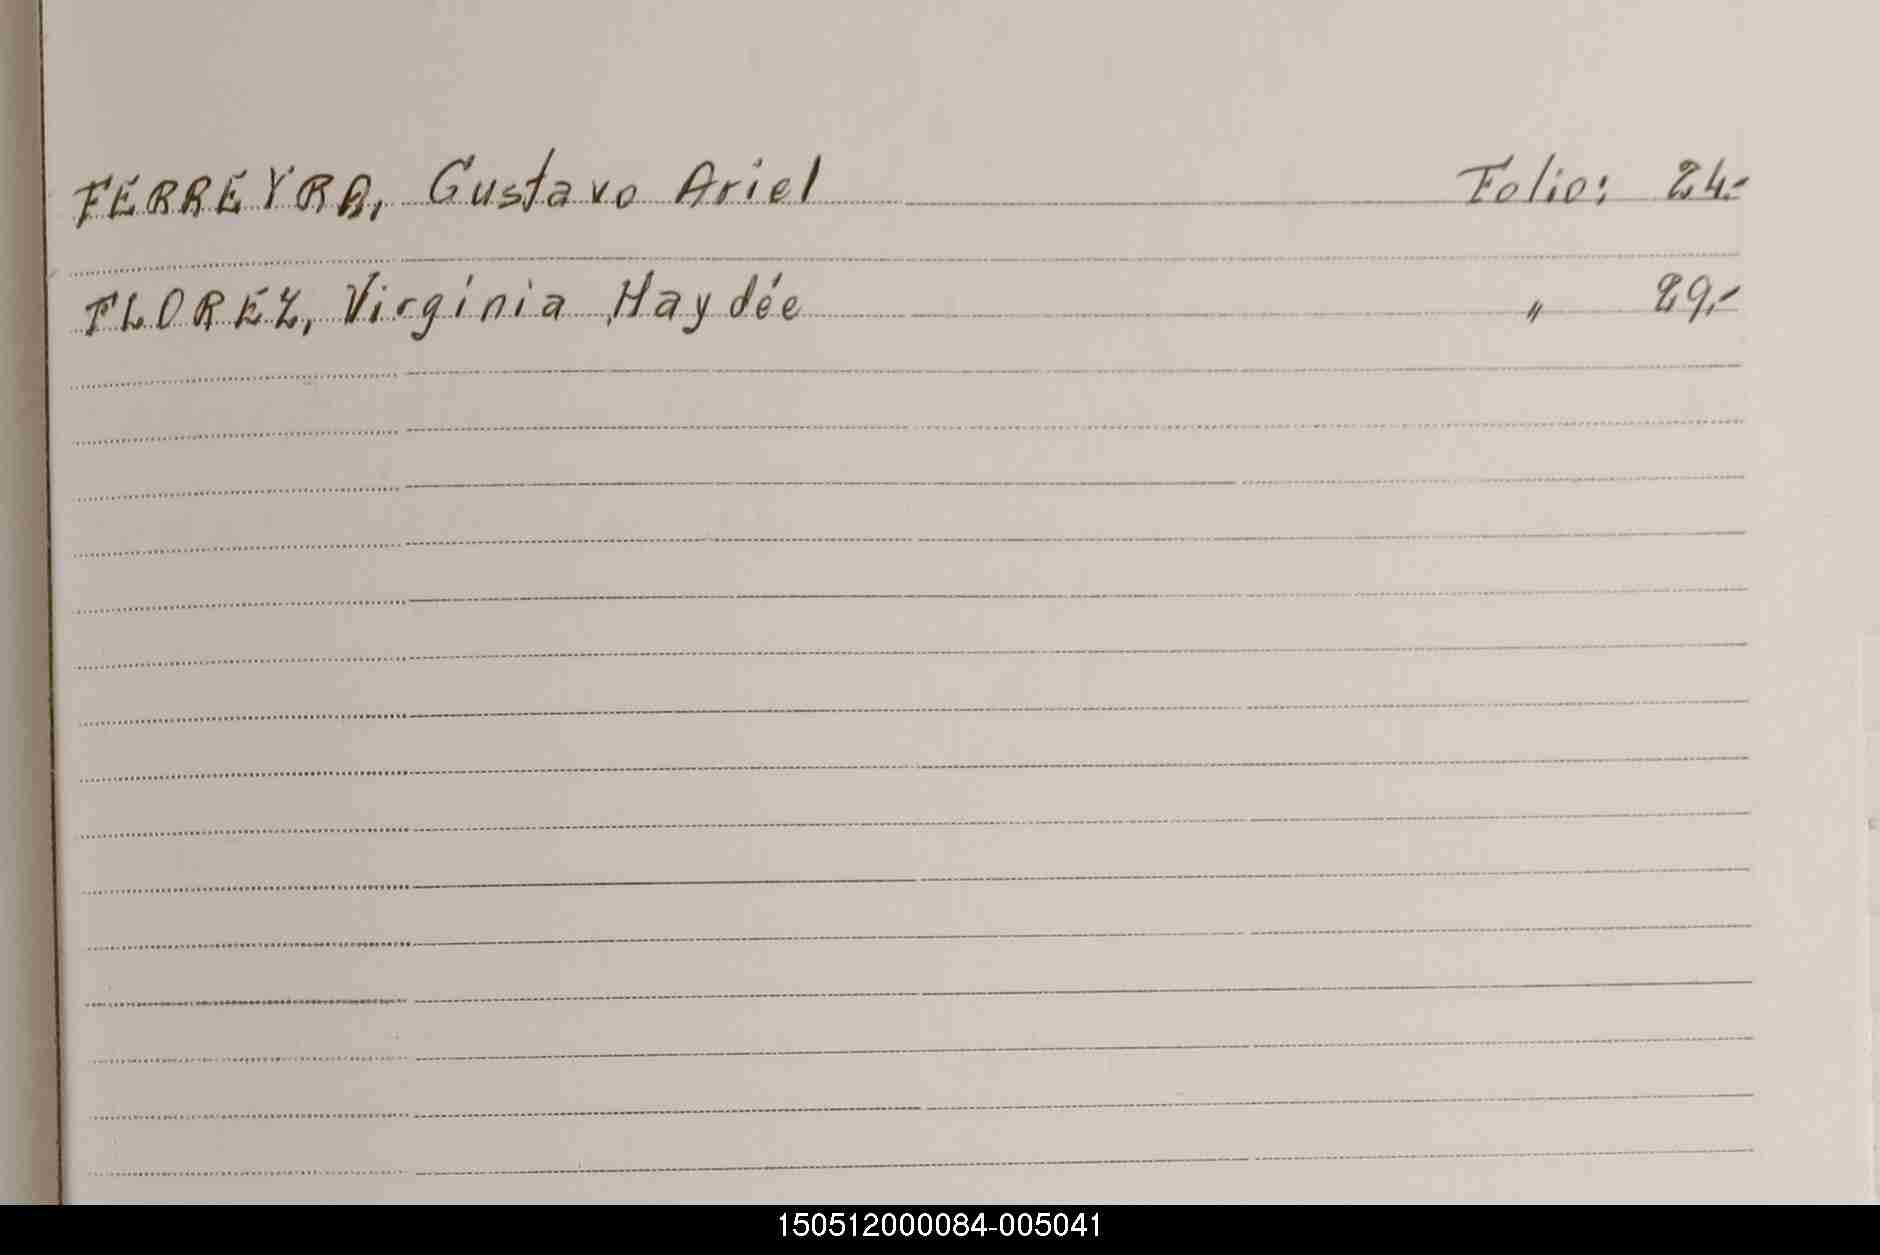 FERREYRA, Gustavo Ariel Folio: 24.-
FLOREZ, Virginia Haydée " 29.-
150512000084-005041